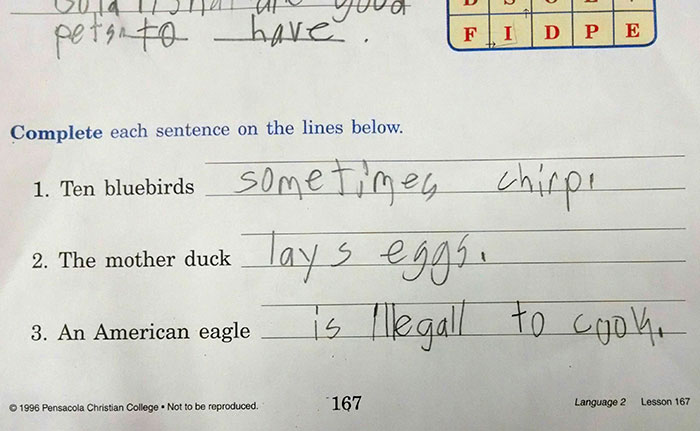 good
pets to have.
F I D P E
Complete each sentence on the lines below.
1. Ten bluebirds sometimes chirp.
2. The mother duck lays eggs.
3. An American eagle is Illegall to cook.
© 1996 Pensacola Christian College • Not to be reproduced. 167 Language 2 Lesson 167